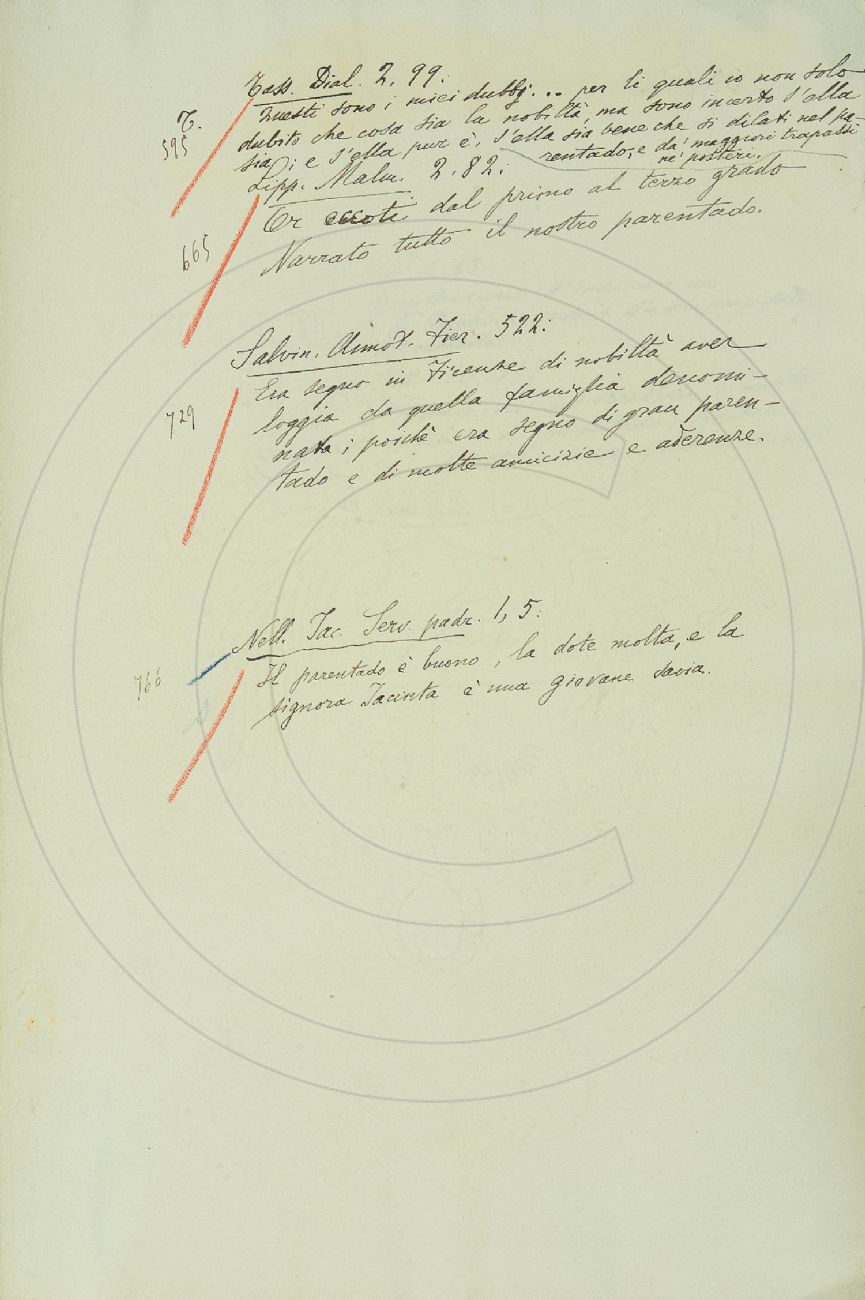 Tass. Dial. 2. 99.
T. Questi sono i miei dubbj... per li quali io non solo
595 dubito che cosa sia la nobiltà, ma sono incerto s'ella
sia; e s'ella pur è, s'ella sia bene che si dilati nel pa-
rentado, e da' maggiori trapassi
ne' posteri.
Lipp. Malm. 2. 82:
665 Or eccoti dal primo al terzo grado
Narrato tutto il nostro parentado.
Salvin. Annot. Fier. 522:
729 Era segno in Firenze di nobiltà aver
loggia da quella famiglia denomi-
nata; poichè era segno di gran paren-
tado e di molte amicizie e aderenze.
Nell. Iac. Serv. padr. 1, 5:
766 Il parentado è buono, la dote molta, e la
signora Iacinta è una giovane savia.